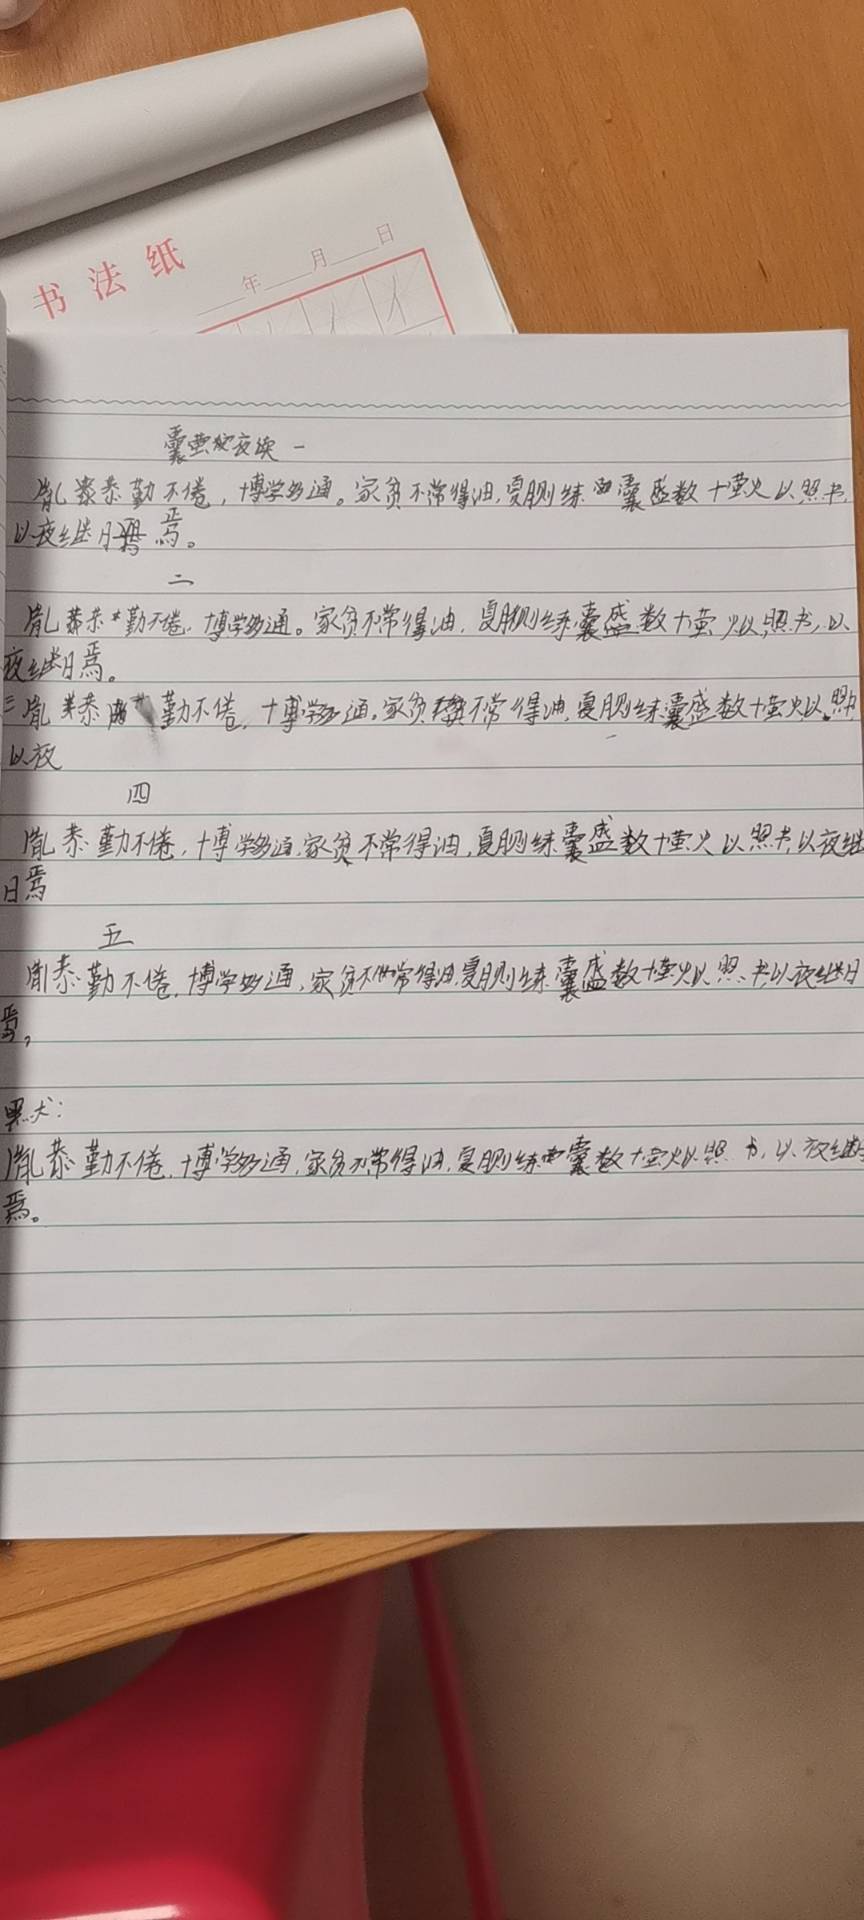 书法纸
年 月 日
囊萤夜读 一
胤恭勤不倦，博学多通。家贫不常得油，夏月则练囊盛数十萤火以照书，
以夜继日焉。
二
胤恭勤不倦，博学多通。家贫不常得油，夏月则练囊盛数十萤火以照书，以
夜继日焉。
三 胤恭勤不倦，博学多通。家贫不常得油，夏月则练囊盛数十萤火以照
以夜
四
胤恭勤不倦，博学多通，家贫不常得油，夏月则练囊盛数十萤火以照书，以夜继
日焉
五
胤恭勤不倦，博学多通，家贫不常得油，夏月则练囊盛数十萤火以照书以夜继日
焉，
默：
胤恭勤不倦，博学多通，家贫不常得油，夏月则练囊数十萤火以照书，以夜继日
焉。